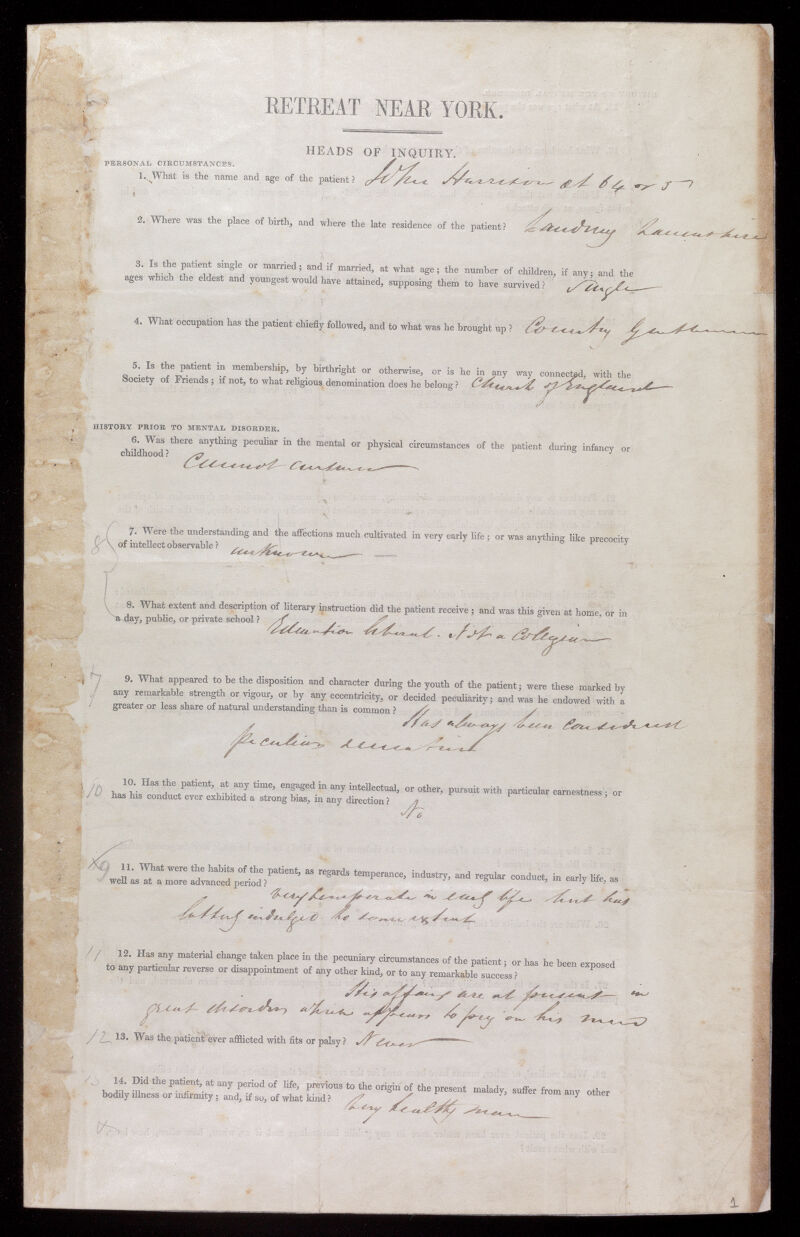 RETREAT NEAR YORK.
HEADS OF INQUIRY.
PERSONAL CIRCUMSTANCES.
1. What is the name and age of the patient? John Harrison at 64 or 5
2. Where was the place of birth, and where the late residence of the patient? Lancashire
3. Is the patient single or married; and if married, at what age; the number of children, if any; and the
ages which the eldest and youngest would have attained, supposing them to have survived? Single
4. What occupation has the patient chiefly followed, and to what was he brought up? Country Gentleman
5. Is the patient in membership, by birthright or otherwise, or is he in any way connected, with the
Society of Friends; if not, to what religious denomination does he belong? Church of England
HISTORY PRIOR TO MENTAL DISORDER.
6. Was there anything peculiar in the mental or physical circumstances of the patient during infancy or
childhood? Cannot answer
8
7. Were the understanding and the affections much cultivated in very early life; or was anything like precocity
of intellect observable? unknown
8. What extent and description of literary instruction did the patient receive; and was this given at home, or in
a day, public, or private school? Education liberal. Not a Collegian
7
9. What appeared to be the disposition and character during the youth of the patient; were these marked by
any remarkable strength or vigour, or by any eccentricity, or decided peculiarity; and was he endowed with a
greater or less share of natural understanding than is common? Has always been considered
peculiar
10
10. Has the patient, at any time, engaged in any intellectual, or other, pursuit with particular earnestness; or
has his conduct ever exhibited a strong bias, in any direction? No
9
11. What were the habits of the patient, as regards temperance, industry, and regular conduct, in early life, as
well as at a more advanced period? very temperate in early life but has
latterly indulged to some extent
11
12. Has any material change taken place in the pecuniary circumstances of the patient; or has he been exposed
to any particular reverse or disappointment of any other kind, or to any remarkable success?
His affairs are at present in
great disorder which appears to prey on his mind
12
13. Was the patient ever afflicted with fits or palsy? Never
14. Did the patient, at any period of life, previous to the origin of the present malady, suffer from any other
bodily illness or infirmity; and, if so, of what kind? Very healthy man
1